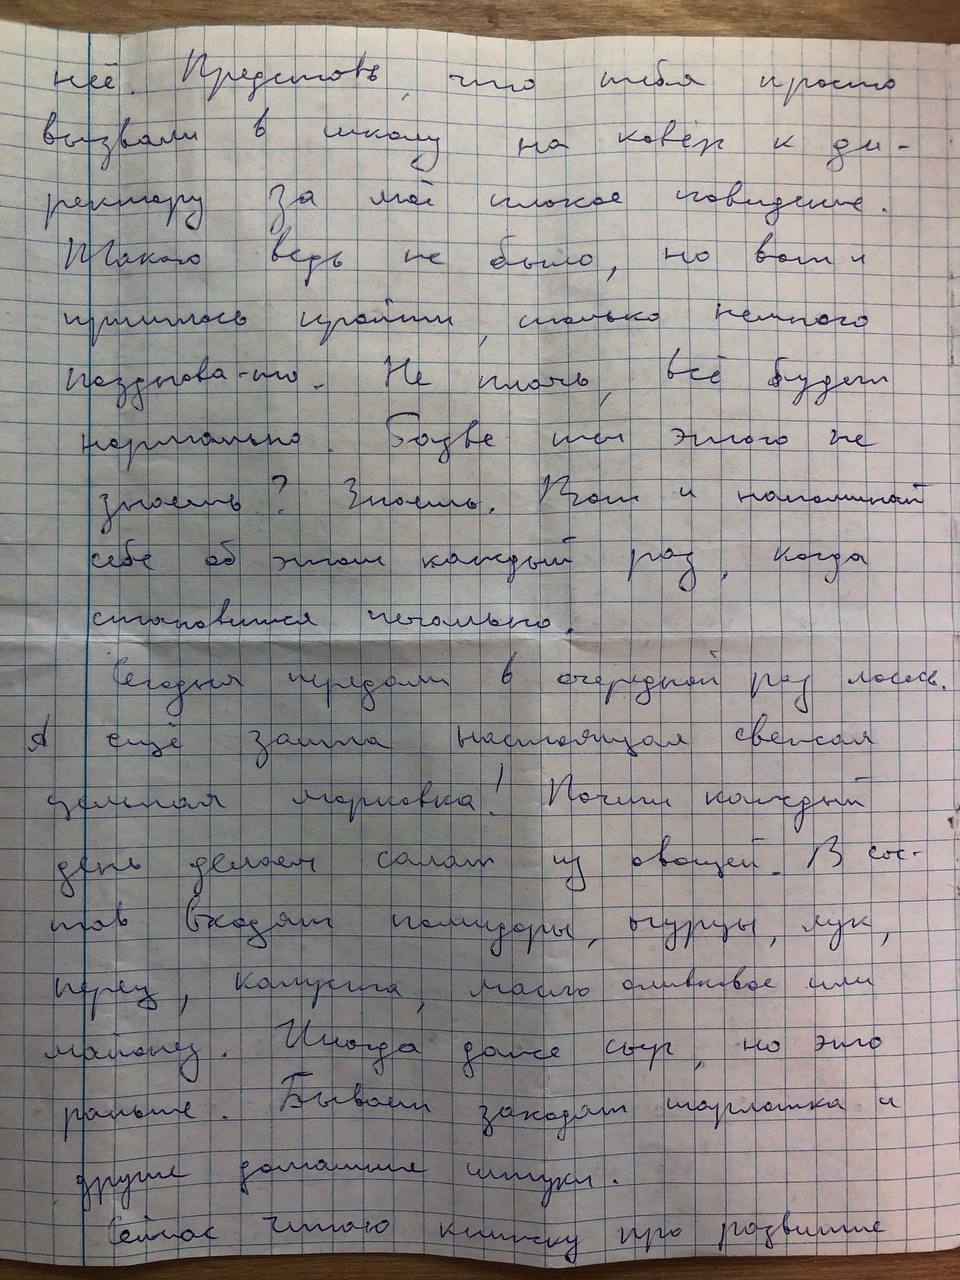 неё. Представь, что тебя просто
вызвали в школу на ковёр к ди-
ректору за моё плохое поведение.
Такого ведь не было, но вот и
пришлось пройти, только немного
поздновато-то. Не плачь, всё будет
нормально. Разве ты этого не
знаешь? Знаешь. Вот и напоминай
себе об этом каждый раз, когда
становится печально.
Сегодня передали в очередной раз лосось.
А ещё зашла настоящая свежая
цельная морковка! Почти каждый
день делаем салат из овощей. В сос-
тав входят помидоры, огурцы, лук,
перец, капуста, масло оливковое или
майонез. Иногда даже сыр, но это
раньше. Бывает заходят шарлотка и
другие домашние штуки.
Сейчас читаю книжку про развитие